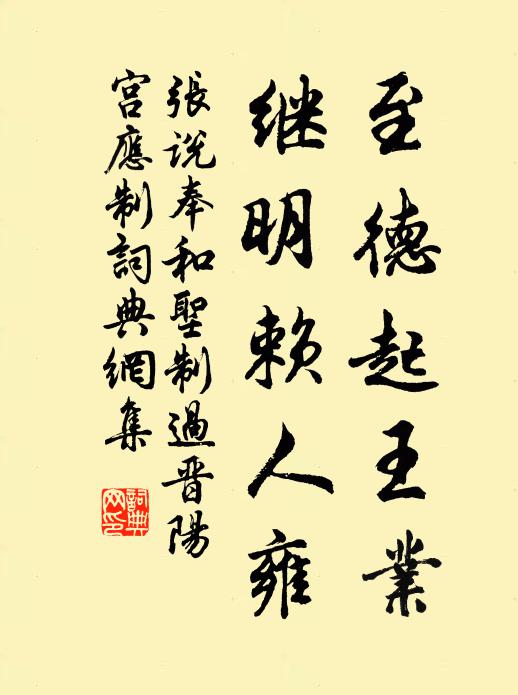 至德起王業
继明賴人雍
張説奉和聖制過晋陽
宫應制詞典網集
詞典
网印